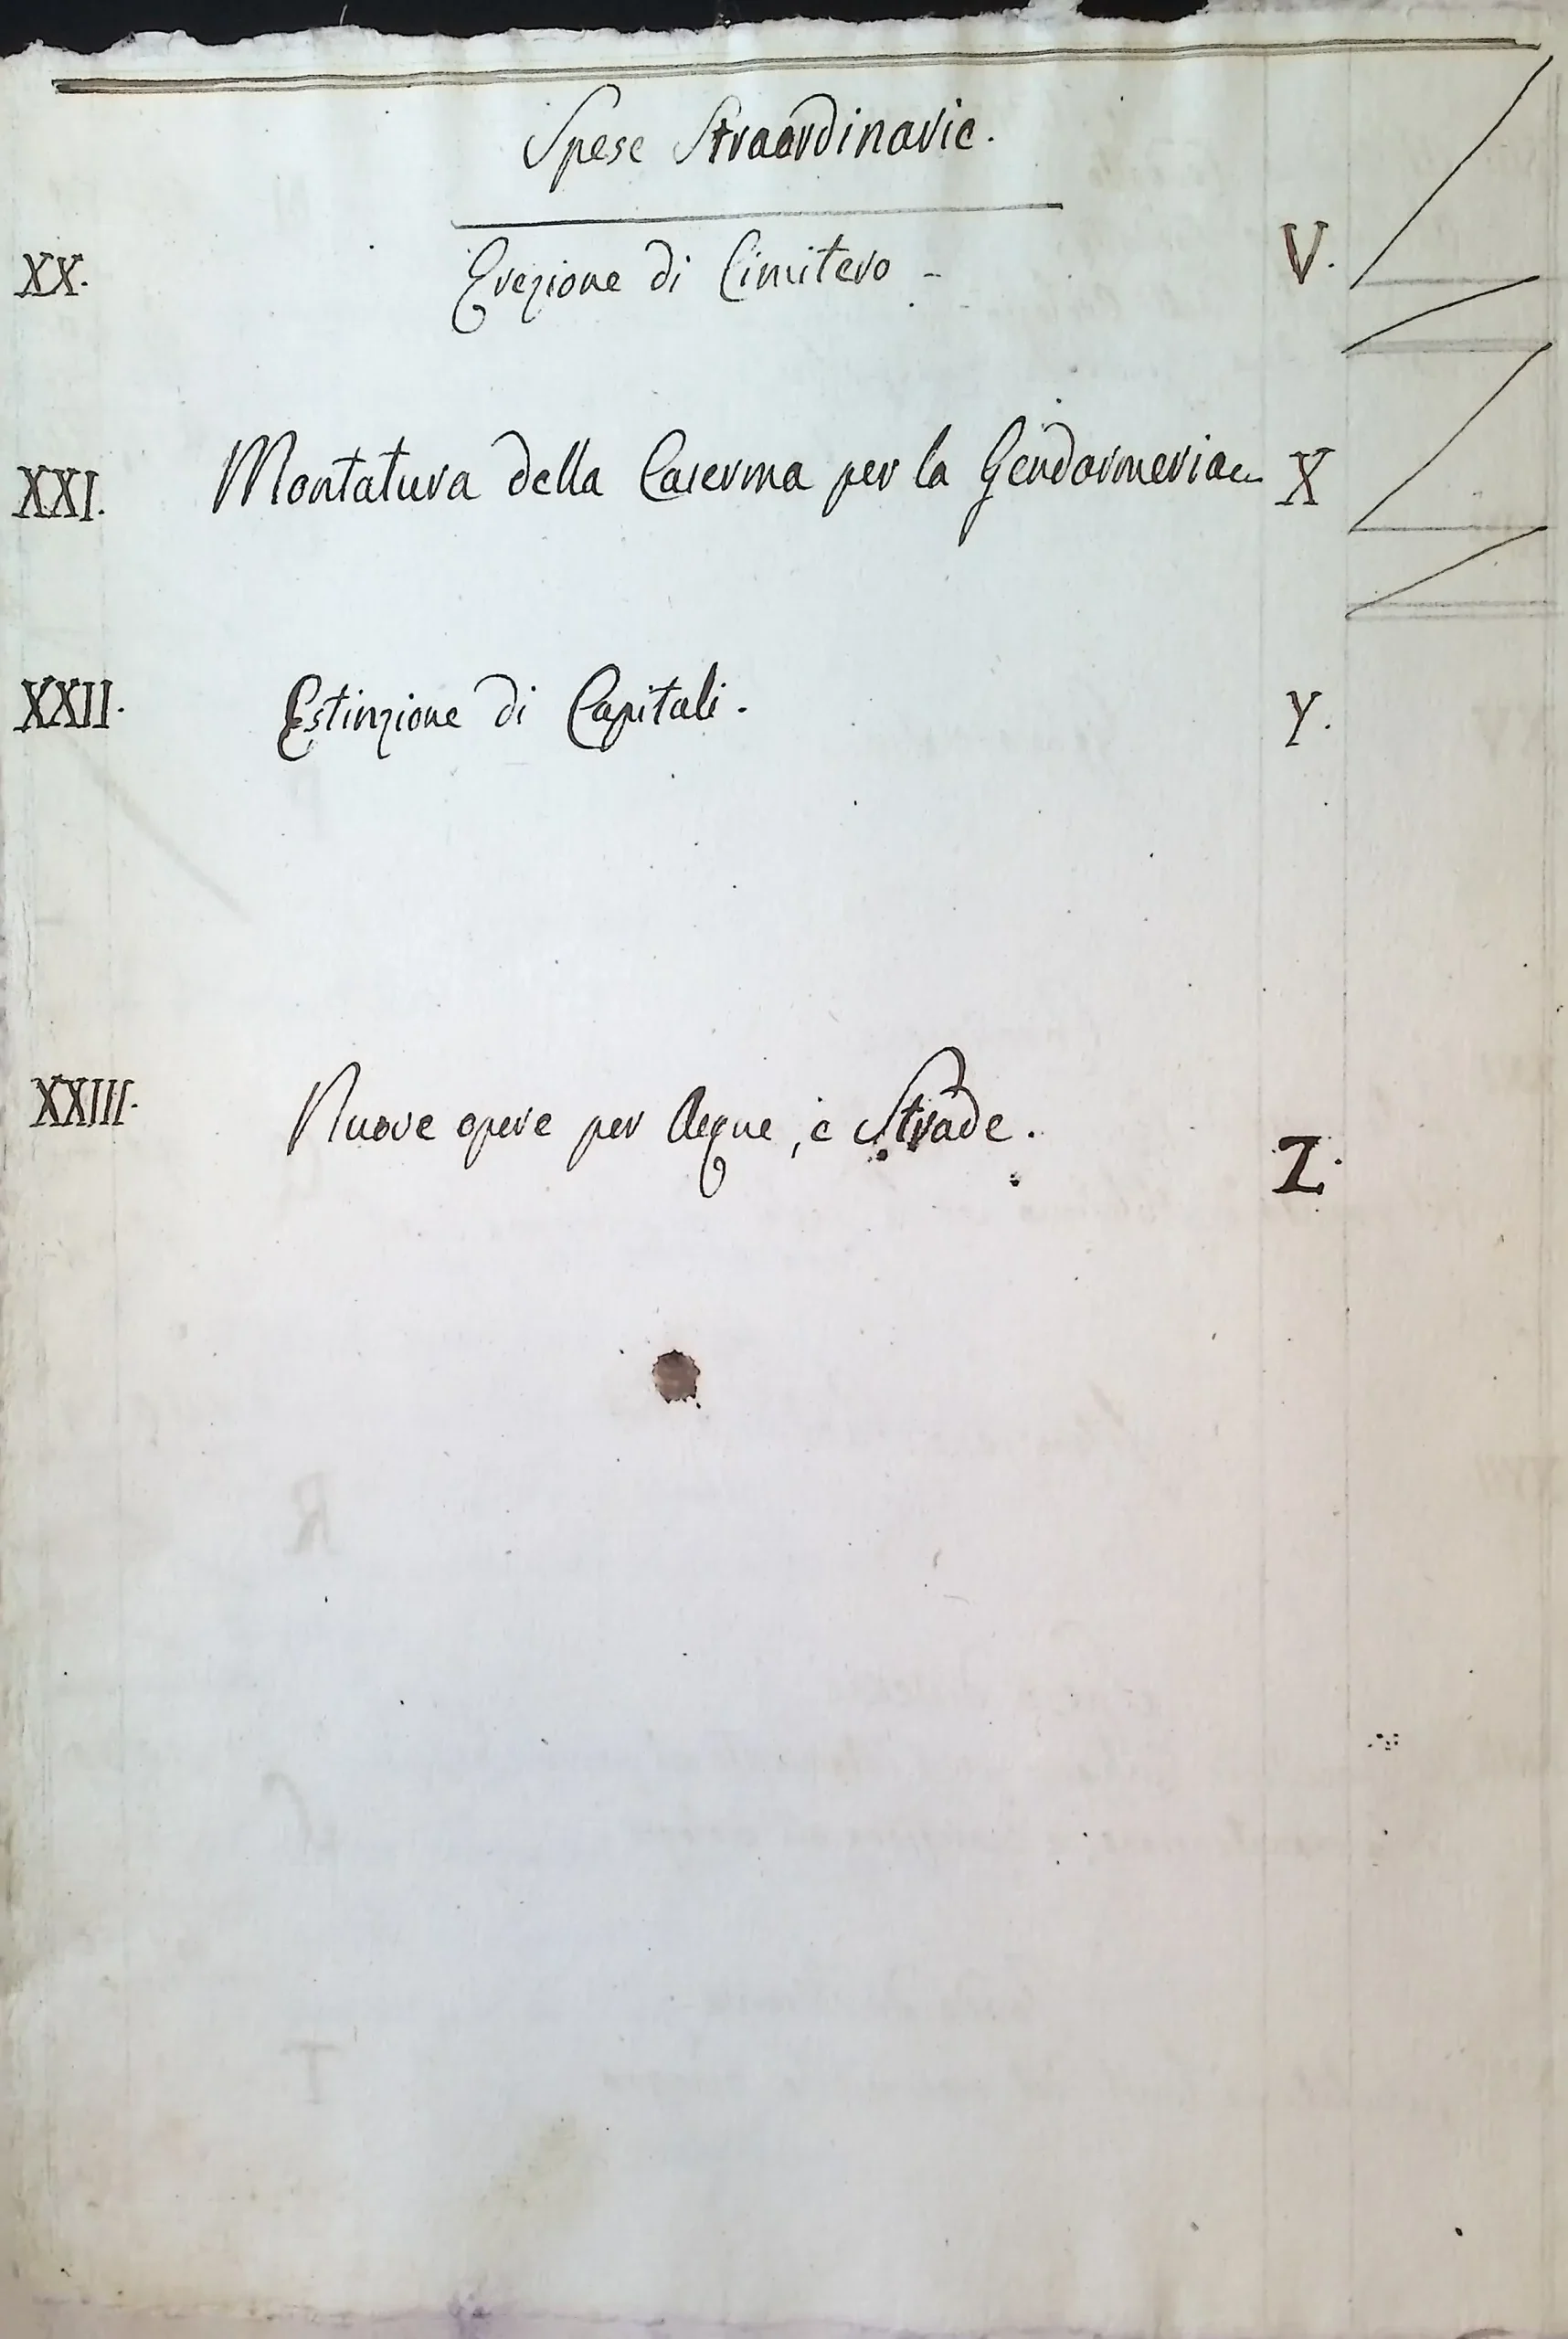 Spese Straordinarie.
XX. Erezione di Cimitero - V.
XXI. Montatura della Caserma per la Gendarmeria X
XXII. Estinzione di Capitali. Y.
XXIII. Nuove opere per Acque, e Strade. Z.